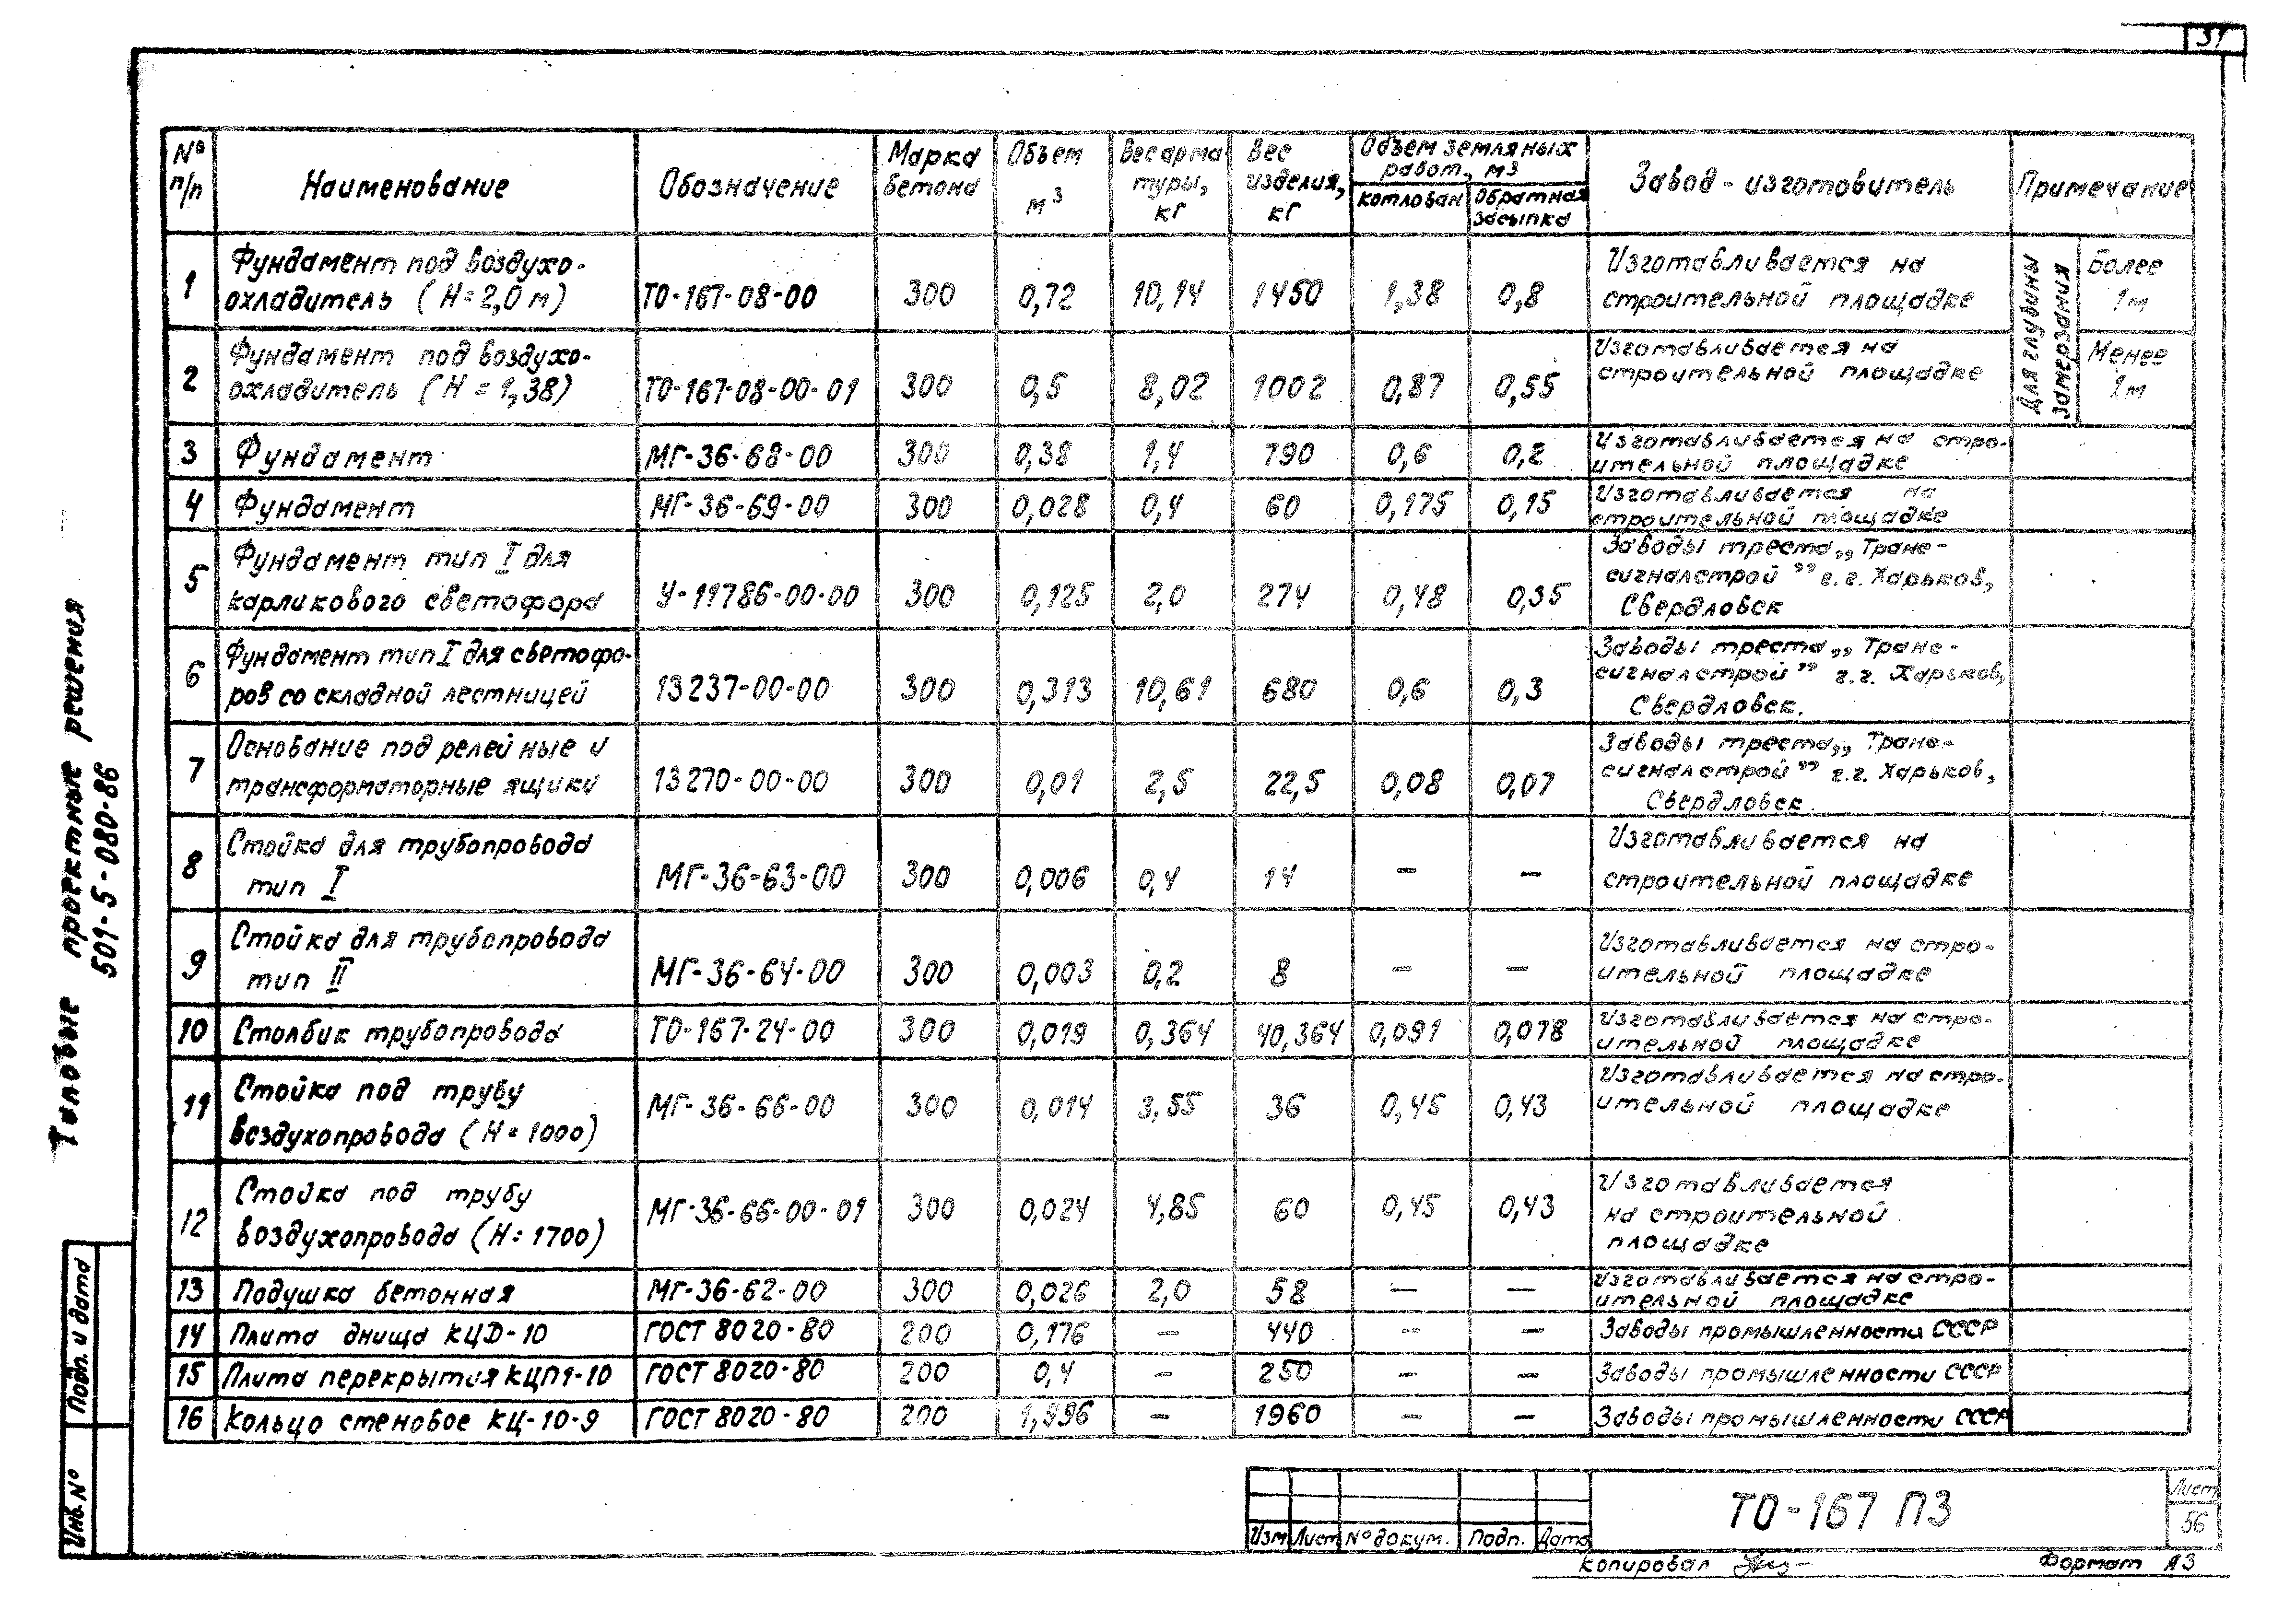 31
Типовые проектные решения
501-5-080-86
№ п/п | Наименование | Обозначение | Марка бетона | Объем м³ | Вес арматуры, кг | Вес изделия, кг | Объем земляных работ, м3 | Завод - изготовитель | Примечание
котлован | Обратная засыпка
1 | Фундамент под воздухо-
охладитель (Н=2,0 м) | ТО-167-08-00 | 300 | 0,72 | 10,14 | 1450 | 1,38 | 0,8 | Изготавливается на
строительной площадке | Для глубины замерзания | Более 1м
2 | Фундамент под воздухо-
охладитель (Н=1,38) | ТО-167-08-00-01 | 300 | 0,5 | 8,02 | 1002 | 0,87 | 0,55 | Изготавливается на
строительной площадке | Менее 1м
3 | Фундамент | МГ-36-68-00 | 300 | 0,38 | 1,4 | 790 | 0,6 | 0,2 | Изготавливается на стро-
ительной площадке
4 | Фундамент | МГ-36-69-00 | 300 | 0,028 | 0,4 | 60 | 0,175 | 0,15 | Изготавливается на
строительной площадке
5 | Фундамент тип I для
карликового светофора | У-11786-00-00 | 300 | 0,125 | 2,0 | 274 | 0,48 | 0,35 | Заводы треста „Транс-
сигналстрой” г.г. Харьков,
Свердловск
6 | Фундамент тип I для светофо-
ров со складной лестницей | 13237-00-00 | 300 | 0,313 | 10,61 | 680 | 0,6 | 0,3 | Заводы треста „Транс-
сигналстрой” г.г. Харьков,
Свердловск.
7 | Основание под релейные и
трансформаторные ящики | 13270-00-00 | 300 | 0,01 | 2,5 | 22,5 | 0,08 | 0,07 | Заводы треста „Транс-
сигналстрой” г.г. Харьков,
Свердловск.
8 | Стойка для трубопровода
тип I | МГ-36-63-00 | 300 | 0,006 | 0,4 | 14 | — | — | Изготавливается на
строительной площадке
9 | Стойка для трубопровода
тип II | МГ-36-64-00 | 300 | 0,003 | 0,2 | 8 | — | — | Изготавливается на стро-
ительной площадке
10 | Столбик трубопровода | ТО-167-24-00 | 300 | 0,019 | 0,364 | 40,364 | 0,091 | 0,078 | Изготавливается на стро-
ительной площадке
11 | Стойка под трубу
воздухопровода (Н=1000) | МГ-36-66-00 | 300 | 0,014 | 3,55 | 36 | 0,45 | 0,43 | Изготавливается на стро-
ительной площадке
12 | Стойка под трубу
воздухопровода (Н=1700) | МГ-36-66-00-01 | 300 | 0,024 | 4,85 | 60 | 0,45 | 0,43 | Изготавливается
на строительной
площадке
13 | Подушка бетонная | МГ-36-62-00 | 300 | 0,026 | 2,0 | 58 | — | — | Изготавливается на стро-
ительной площадке
14 | Плита днища КЦД-10 | ГОСТ 8020-80 | 200 | 0,176 | — | 440 | — | — | Заводы промышленности СССР
15 | Плита перекрытия КЦП1-10 | ГОСТ 8020-80 | 200 | 0,4 | — | 250 | — | — | Заводы промышленности СССР
16 | Кольцо стеновое КЦ-10-9 | ГОСТ 8020-80 | 200 | 1,996 | — | 1960 | — | — | Заводы промышленности СССР
Подп. и дата
Инв. №
Изм. Лист № докум. Подп. Дата
ТО-167 ПЗ
Лист
56
Копировал
Формат А3